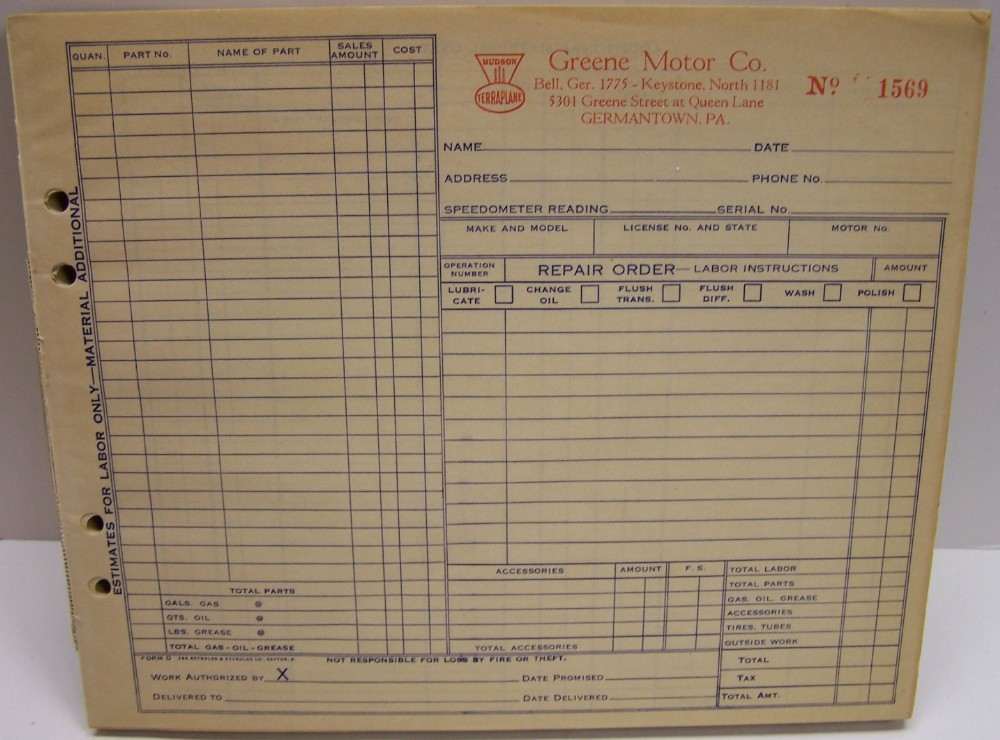 QUAN.
PART No.
NAME OF PART
SALES AMOUNT
COST
ESTIMATES FOR LABOR ONLY—MATERIAL ADDITIONAL
TOTAL PARTS
GALS. GAS @
QTS. OIL @
LBS. GREASE @
TOTAL GAS-OIL-GREASE
HUDSON
TERRAPLANE
Greene Motor Co.
Bell, Ger. 1775 - Keystone, North 1181
5301 Greene Street at Queen Lane
GERMANTOWN, PA.
Nº 1569
NAME DATE
ADDRESS PHONE No.
SPEEDOMETER READING SERIAL No.
MAKE AND MODEL LICENSE No. AND STATE MOTOR No.
OPERATION NUMBER REPAIR ORDER—LABOR INSTRUCTIONS AMOUNT
LUBRI-CATE CHANGE OIL FLUSH TRANS. FLUSH DIFF. WASH POLISH
ACCESSORIES AMOUNT F. S.
TOTAL ACCESSORIES
TOTAL LABOR
TOTAL PARTS
GAS. OIL. GREASE
ACCESSORIES
TIRES. TUBES
OUTSIDE WORK
TOTAL
TAX
TOTAL AMT.
FORM D THE REYNOLDS & REYNOLDS CO. DAYTON, O. NOT RESPONSIBLE FOR LOSS BY FIRE OR THEFT.
WORK AUTHORIZED BY X DATE PROMISED
DELIVERED TO DATE DELIVERED